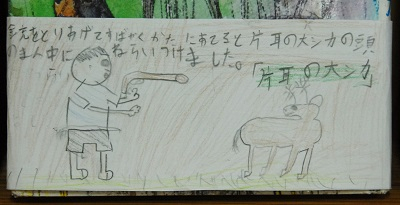 銃をとりあげてすばやくかたにあてると片耳の大シカの頭
のまん中にねらいつけました。
「片耳の大シカ」